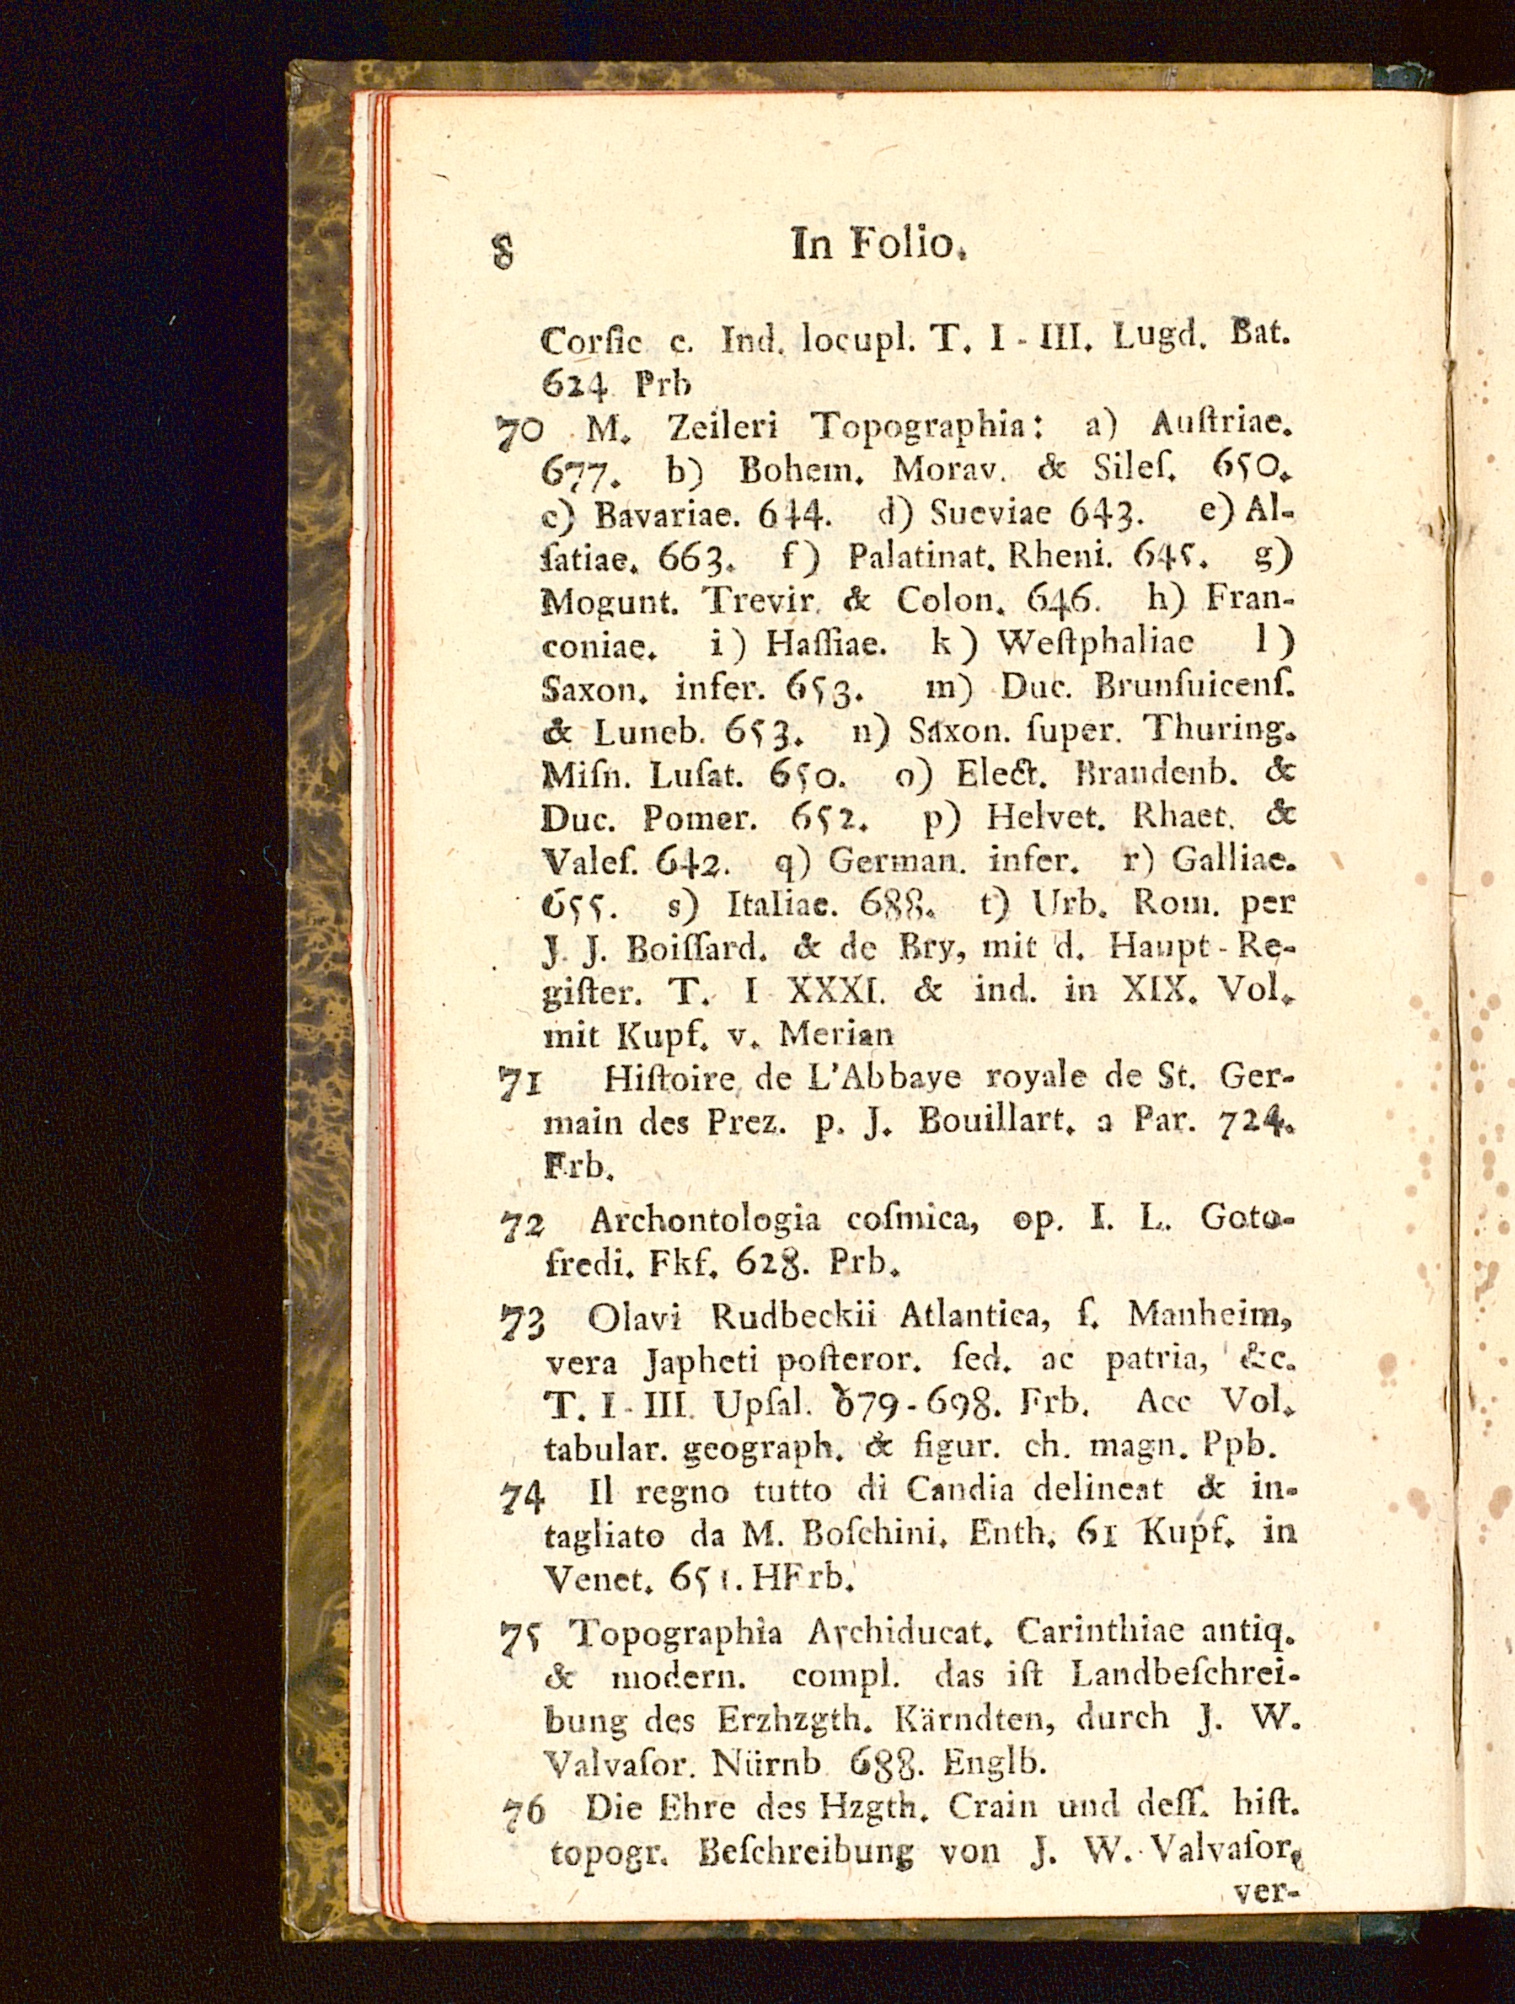 8 In Folio.
Corſic c. Ind. locupl. T. I - III. Lugd. Bat.
624 Prb
70 M. Zeileri Topographia: a) Auſtriae.
677. b) Bohem. Morav. & Sileſ. 650.
c) Bavariae. 644. d) Sueviae 643. e) Al-
ſatiae. 663. f) Palatinat. Rheni. 645. g)
Mogunt. Trevir. & Colon. 646. h) Fran-
coniae. i) Haſſiae. k) Weſtphaliae l)
Saxon. infer. 653. m) Duc. Brunſuicenſ.
& Luneb. 653. n) Saxon. ſuper. Thuring.
Miſn. Luſat. 650. o) Elect. Brandenb. &
Duc. Pomer. 652. p) Helvet. Rhaet. &
Valeſ. 642. q) German. infer. r) Galliae.
655. s) Italiae. 688. t) Urb. Rom. per
J. J. Boiſſard. & de Bry, mit d. Haupt-Re-
giſter. T. I XXXI. & ind. in XIX. Vol.
mit Kupf. v. Merian
71 Hiſtoire de L'Abbaye royale de St. Ger-
main des Prez. p. J. Bouillart. a Par. 724.
Frb.
72 Archontologia coſmica, op. I. L. Goto-
fredi. Fkf. 628. Prb.
73 Olavi Rudbeckii Atlantica, ſ. Manheim,
vera Japheti poſteror. ſed. ac patria, &c.
T. I - III. Upſal. 679-698. Frb. Acc Vol.
tabular. geograph. & figur. ch. magn. Ppb.
74 Il regno tutto di Candia delineat & in-
tagliato da M. Boſchini. Enth. 61 Kupf. in
Venet. 651. HFrb.
75 Topographia Archiducat. Carinthiae antiq.
& modern. compl. das iſt Landbeſchrei-
bung des Erzhzgth. Kärndten, durch J. W.
Valvaſor. Nürnb 688. Englb.
76 Die Ehre des Hzgth. Crain und deſſ. hiſt.
topogr. Beſchreibung von J. W. Valvaſor,
ver-